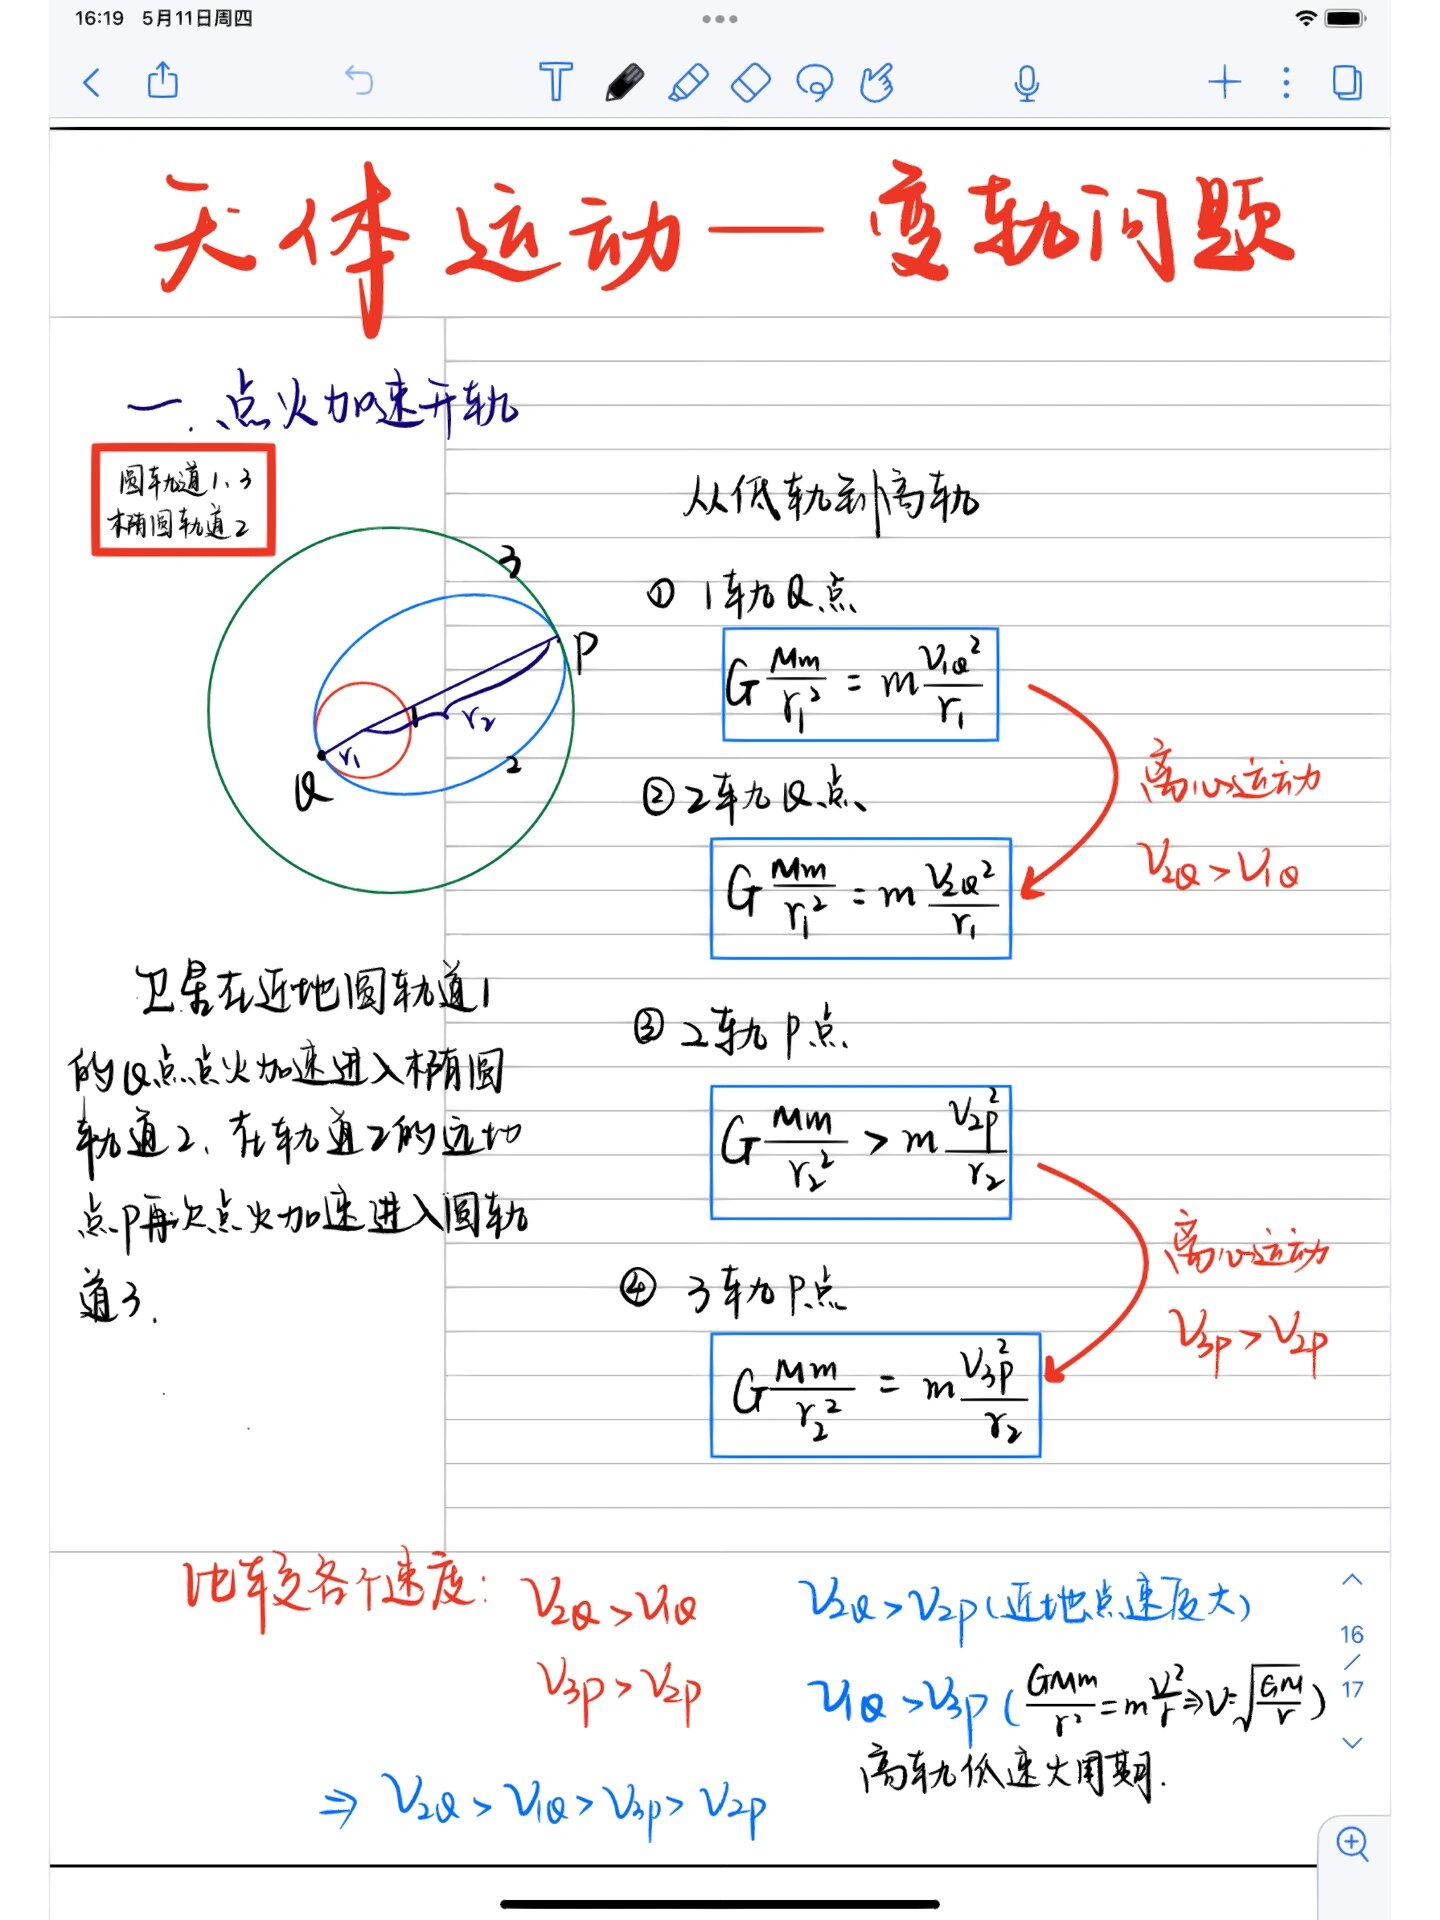 16:19 5月11日周四
天体运动—变轨问题
一、点火加速升轨
圆轨道1、3
椭圆轨道2
3
P
r₂
r₁
2
Q
卫星在近地圆轨道1
的Q点点火加速进入椭圆
轨道2、在轨道2的远地
点P再次点火加速进入圆轨
道3.
从低轨到高轨
① 1轨Q点
G Mm/r₁² = m V₁Q²/r₁
② 2轨Q点
G Mm/r₁² = m V₂Q²/r₁
离心运动
V₂Q > V₁Q
③ 2轨P点
G Mm/r₂² > m V₂P²/r₂
④ 3轨P点
G Mm/r₂² = m V₃P²/r₂
离心运动
V₃P > V₂P
比较各个速度: V₂Q > V₁Q
V₃P > V₂P
V₂Q > V₂P (近地点速度大)
V₁Q > V₃P (GMm/r² = m V²/r ⇒ V = √(GM/r))
高轨低速大周期.
⇒ V₂Q > V₁Q > V₃P > V₂P
16
/
17